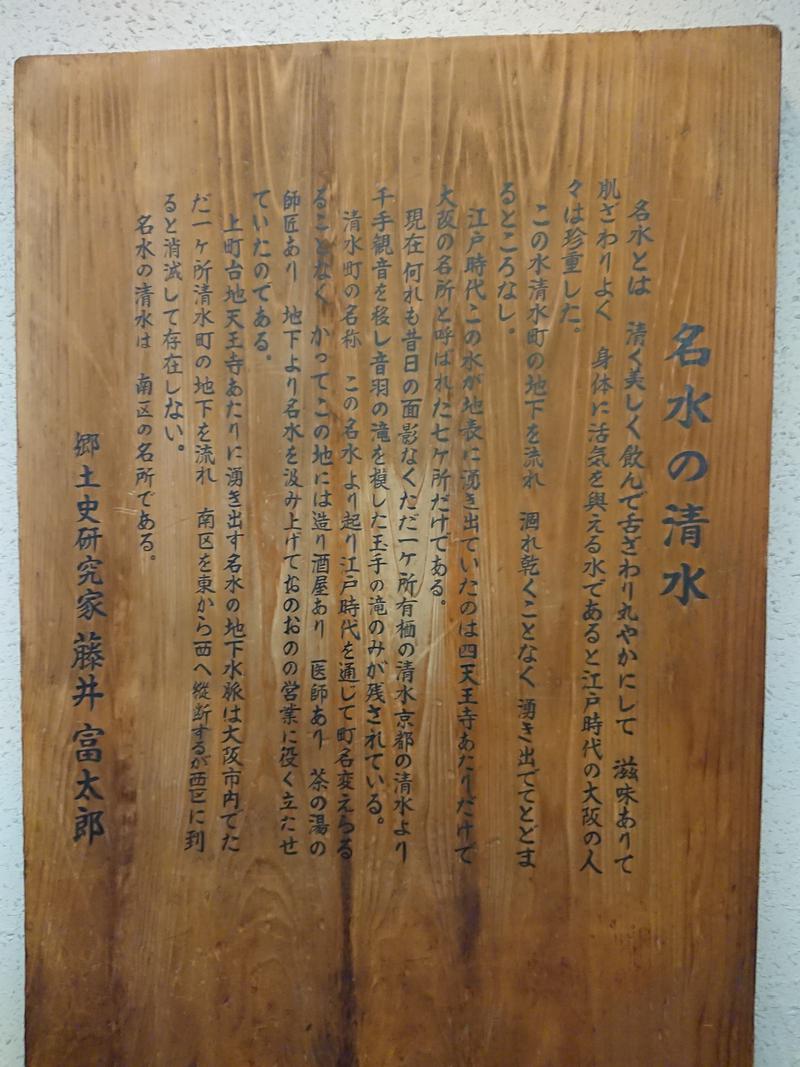 名水の清水
名水とは 清く美しく飲んで舌ざわり丸やかにして 滋味ありて
肌ざわりよく 身体に活気を與える水であると江戸時代の大阪の人
々は珍重した。
この水清水町の地下を流れ 涸れ乾くことなく湧き出でてとどま
るところなし。
江戸時代この水が地表に湧き出ていたのは四天王寺あたりだけで
大阪の名所と呼ばれた七ケ所だけである。
現在何れも昔日の面影なくただ一ケ所有栖の清水京都の清水より
千手観音を移し音羽の滝を模した玉手の滝のみが残されている。
清水町の名称 この名水より起り江戸時代を通じて町名変えらる
ることなく かってこの地には造り酒屋あり 医師あり 茶の湯の
師匠あり 地下より名水を汲み上げておのおのの営業に役く立たせ
ていたのである。
上町台地天王寺あたりに湧き出す名水の地下水脈は大阪市内でた
だ一ケ所清水町の地下を流れ 南区を東から西へ縦断するが西区に到
ると消滅して存在しない。
名水の清水は 南区の名所である。
郷土史研究家 藤井 富太郎